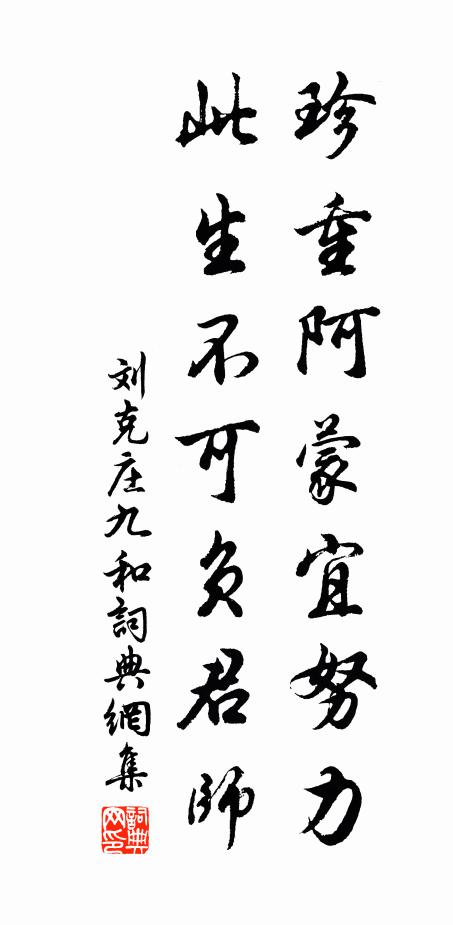 珍重阿蒙宜努力
此生不可负君师
刘克庄九和詞典網集
詞典网印